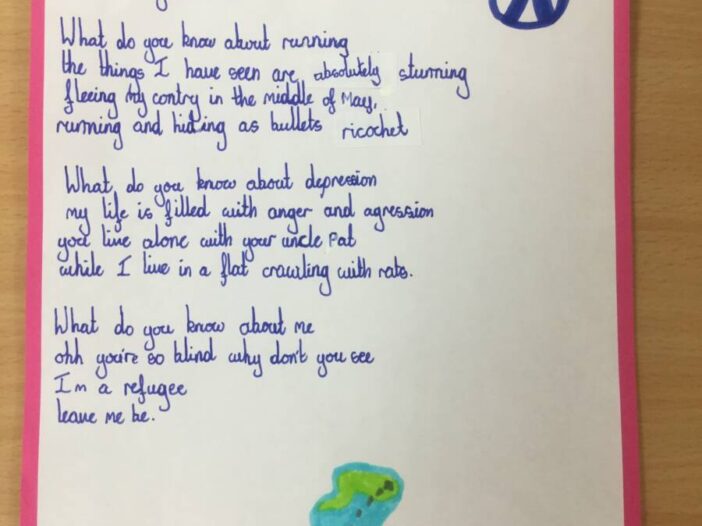 What do you know about running
the things I have seen are absolutely stunning
fleeing my contry in the middle of May,
running and hiding as bullets ricochet
What do you know about depression
my life is filled with anger and agression
you live alone with your uncle Pat
while I live in a flat crawling with rats.
What do you know about me
ohh you're so blind why don't you see
I'm a refugee
leave me be.